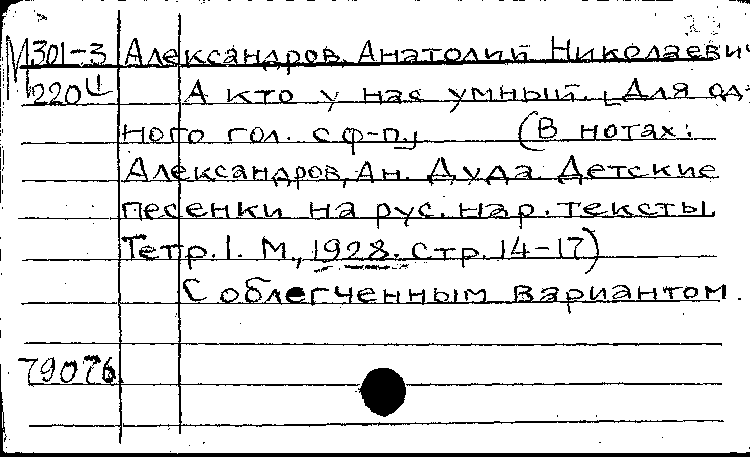 М 301-3 Александров, Анатолий Николаевич
220 А кто у нас умный. [Для од-
ного гол. с ф-п.] (В нотах:
Александров, Ан. Дуда. Детские
песенки на рус. нар. тексты.
Тетр. 1. М., 1928. стр. 14-17)
С облегченным вариантом.
79076